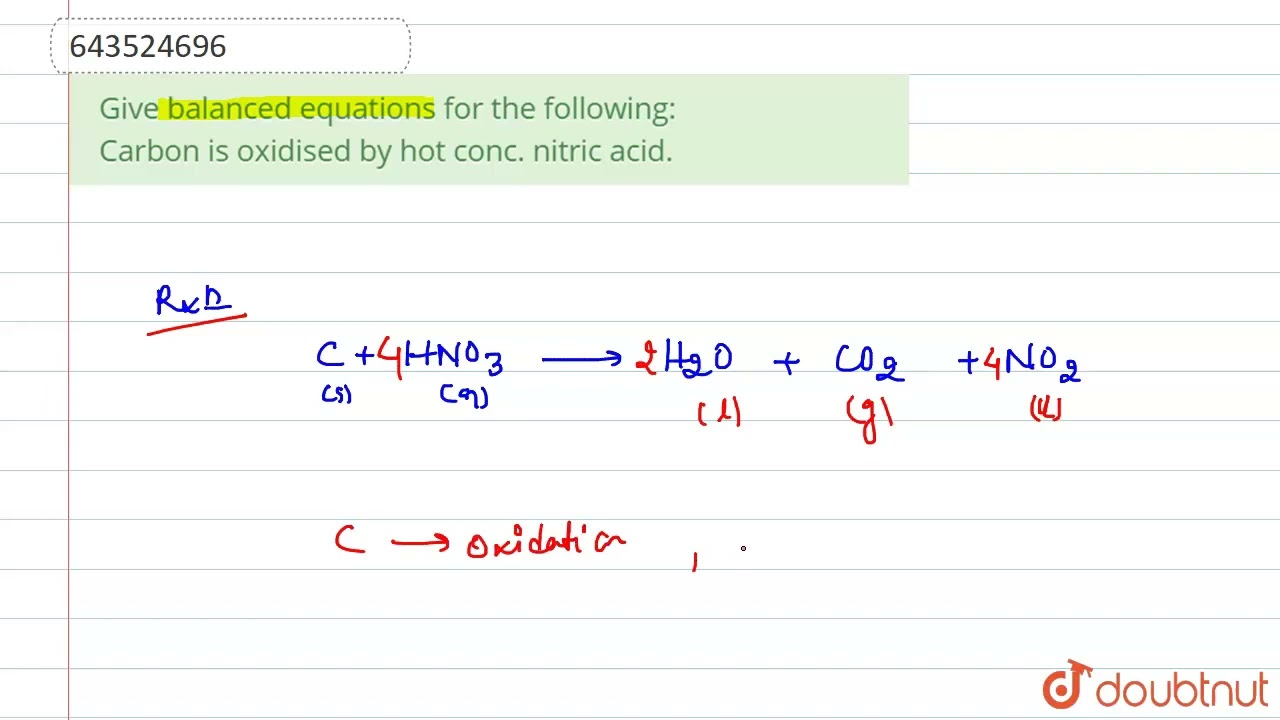 643524696
Give balanced equations for the following:
Carbon is oxidised by hot conc. nitric acid.
Rxn
C + 4HNO3 ⟶ 2H2O + CO2 + 4NO2
(s) (aq) (l) (g)
C ⟶ oxidation ,
doubtnut